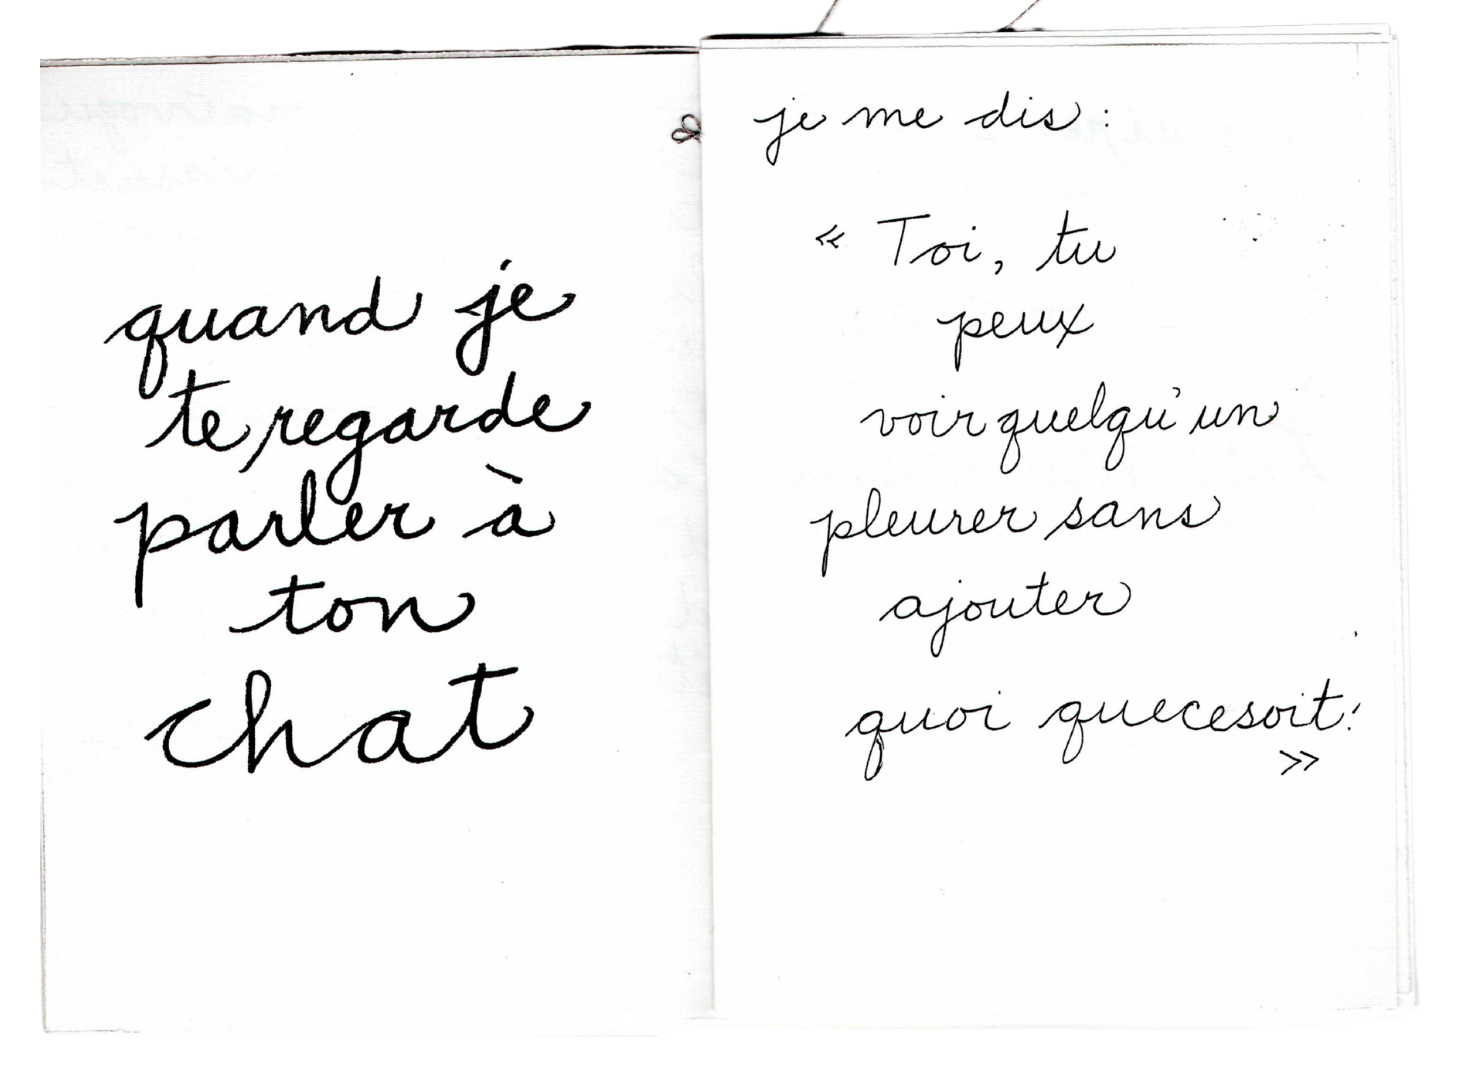 quand je
te regarde
parler à
ton
chat
je me dis :
« Toi, tu
peux
voir quelqu'un
pleurer sans
ajouter
quoi que ce soit!
»